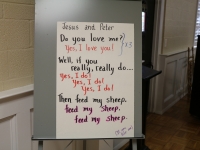 Jesus and Peter
Do you love me?
Yes, I love you!
x 3
Well, if you
really, really do...
yes, I do!
Yes, I do!
Yes, I do!
Then feed my sheep.
feed my sheep.
feed my sheep.